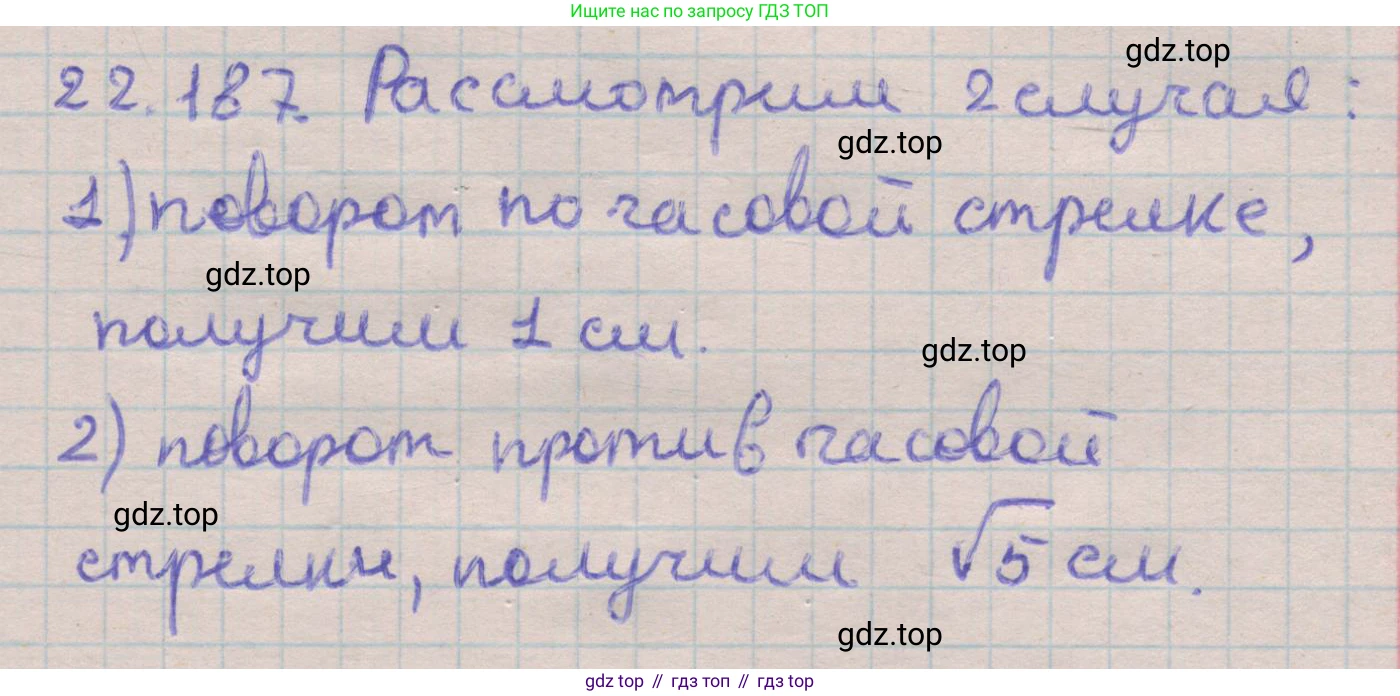 Ищите нас по запросу ГДЗ ТОП
gdz.top
22.187. Рассмотрим 2 случая:
gdz.top
1) поворот по часовой стрелке,
gdz.top
получим 1 см.
gdz.top
2) поворот против часовой
gdz.top
стрелки, получим √5 см.
gdz.top
gdz top // гдз топ // gdz top